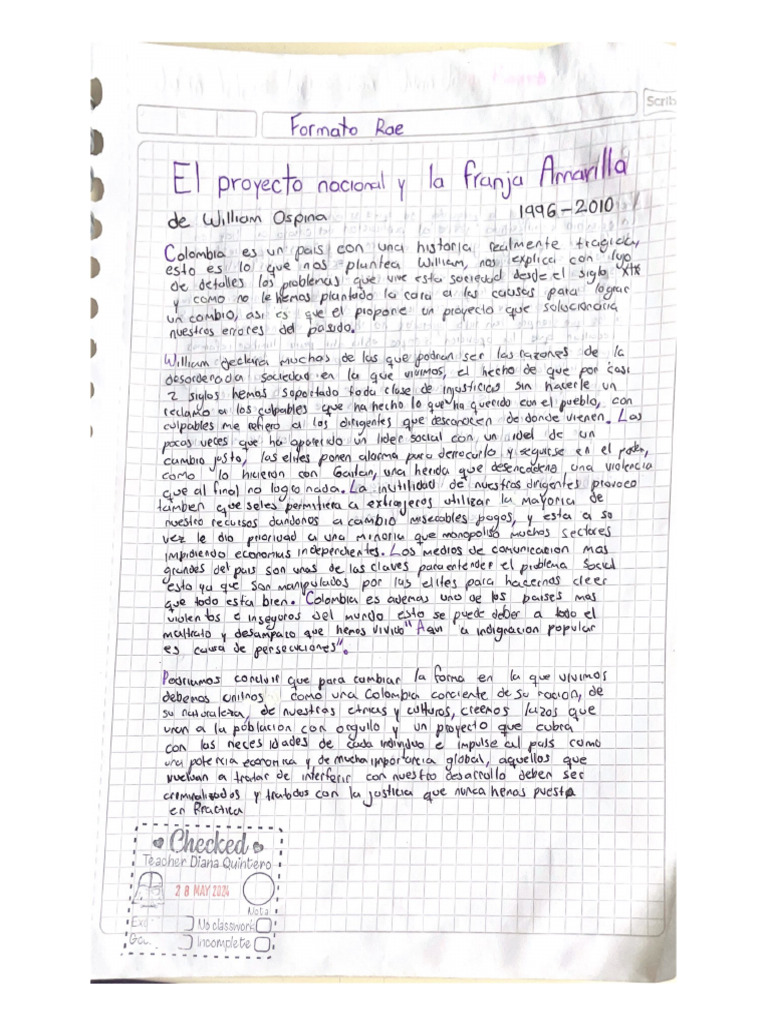 Scrib
Formato Rae
El proyecto nacional y la franja Amarilla
de William Ospina 1996-2010
Colombia es un pais con una historia realmente tragica,
esto es lo que nos plantea William, nos explica con lujo
de detalles los problemas que vive esta sociedad desde el siglo XIX
y como no le hemos plantado la cara a las causas para lograr
un cambio, asi es que el propone un proyecto que solucionaria
nuestros errores del pasado.
William declara muchas de las que podrian ser las razones de la
desordenada sociedad en la que vivimos, el hecho de que por casi
2 siglos hemos soportado toda clase de injusticias sin hacerle un
reclamo a los culpables que ha hecho lo que ha querido con el pueblo, con
culpables me refiero a los dirigentes que desconocen de donde vienen. Las
pocas veces que ha aparecido un lider social con un ideal de un
cambio justo, las elites ponen alarma para derrocarlo y seguirse en el poder,
como lo hicieron con Gaitan, una herida que desencadeno una violencia
que al final no logro nada. La inutilidad de nuestros dirigentes provoco
tambien que seles permitiera a extranjeros utilizar la mayoria de
nuestro recursos dandonos a cambio miserables pagos, y esta a su
vez le dio prioridad a una minoria que monopolizo muchos sectores
impidiendo economias independientes. Los medios de comunicacion mas
grandes del pais son unas de las claves para entender el problema social
esto ya que son manipulados por las elites para hacernos creer
que todo esta bien. Colombia es ademas uno de los paises mas
violentos e inseguros del mundo esto se puede deber a todo el
maltrato y desamparo que hemos vivido "Aqui la indignacion popular
es causa de persecuciones".
Podriamos concluir que para cambiar la forma en la que vivimos
debemos unirnos como una Colombia conciente de su nacion, de
su naturaleza, de nuestras etnias y culturas, creemos lazos que
unan a la poblacion con orgullo y un proyecto que cubra
con las necesidades de cada individuo e impulse al pais como
una potencia economica y de mucha importancia global, aquellos que
vuelvan a tratar de interferir con nuestro desarrollo deben ser
criminalizados y tratados con la justicia que nunca hemos puesta
en Practica
Checked
Teacher Diana Quintero
28 MAY 2024
Nota
No classwork
Incomplete